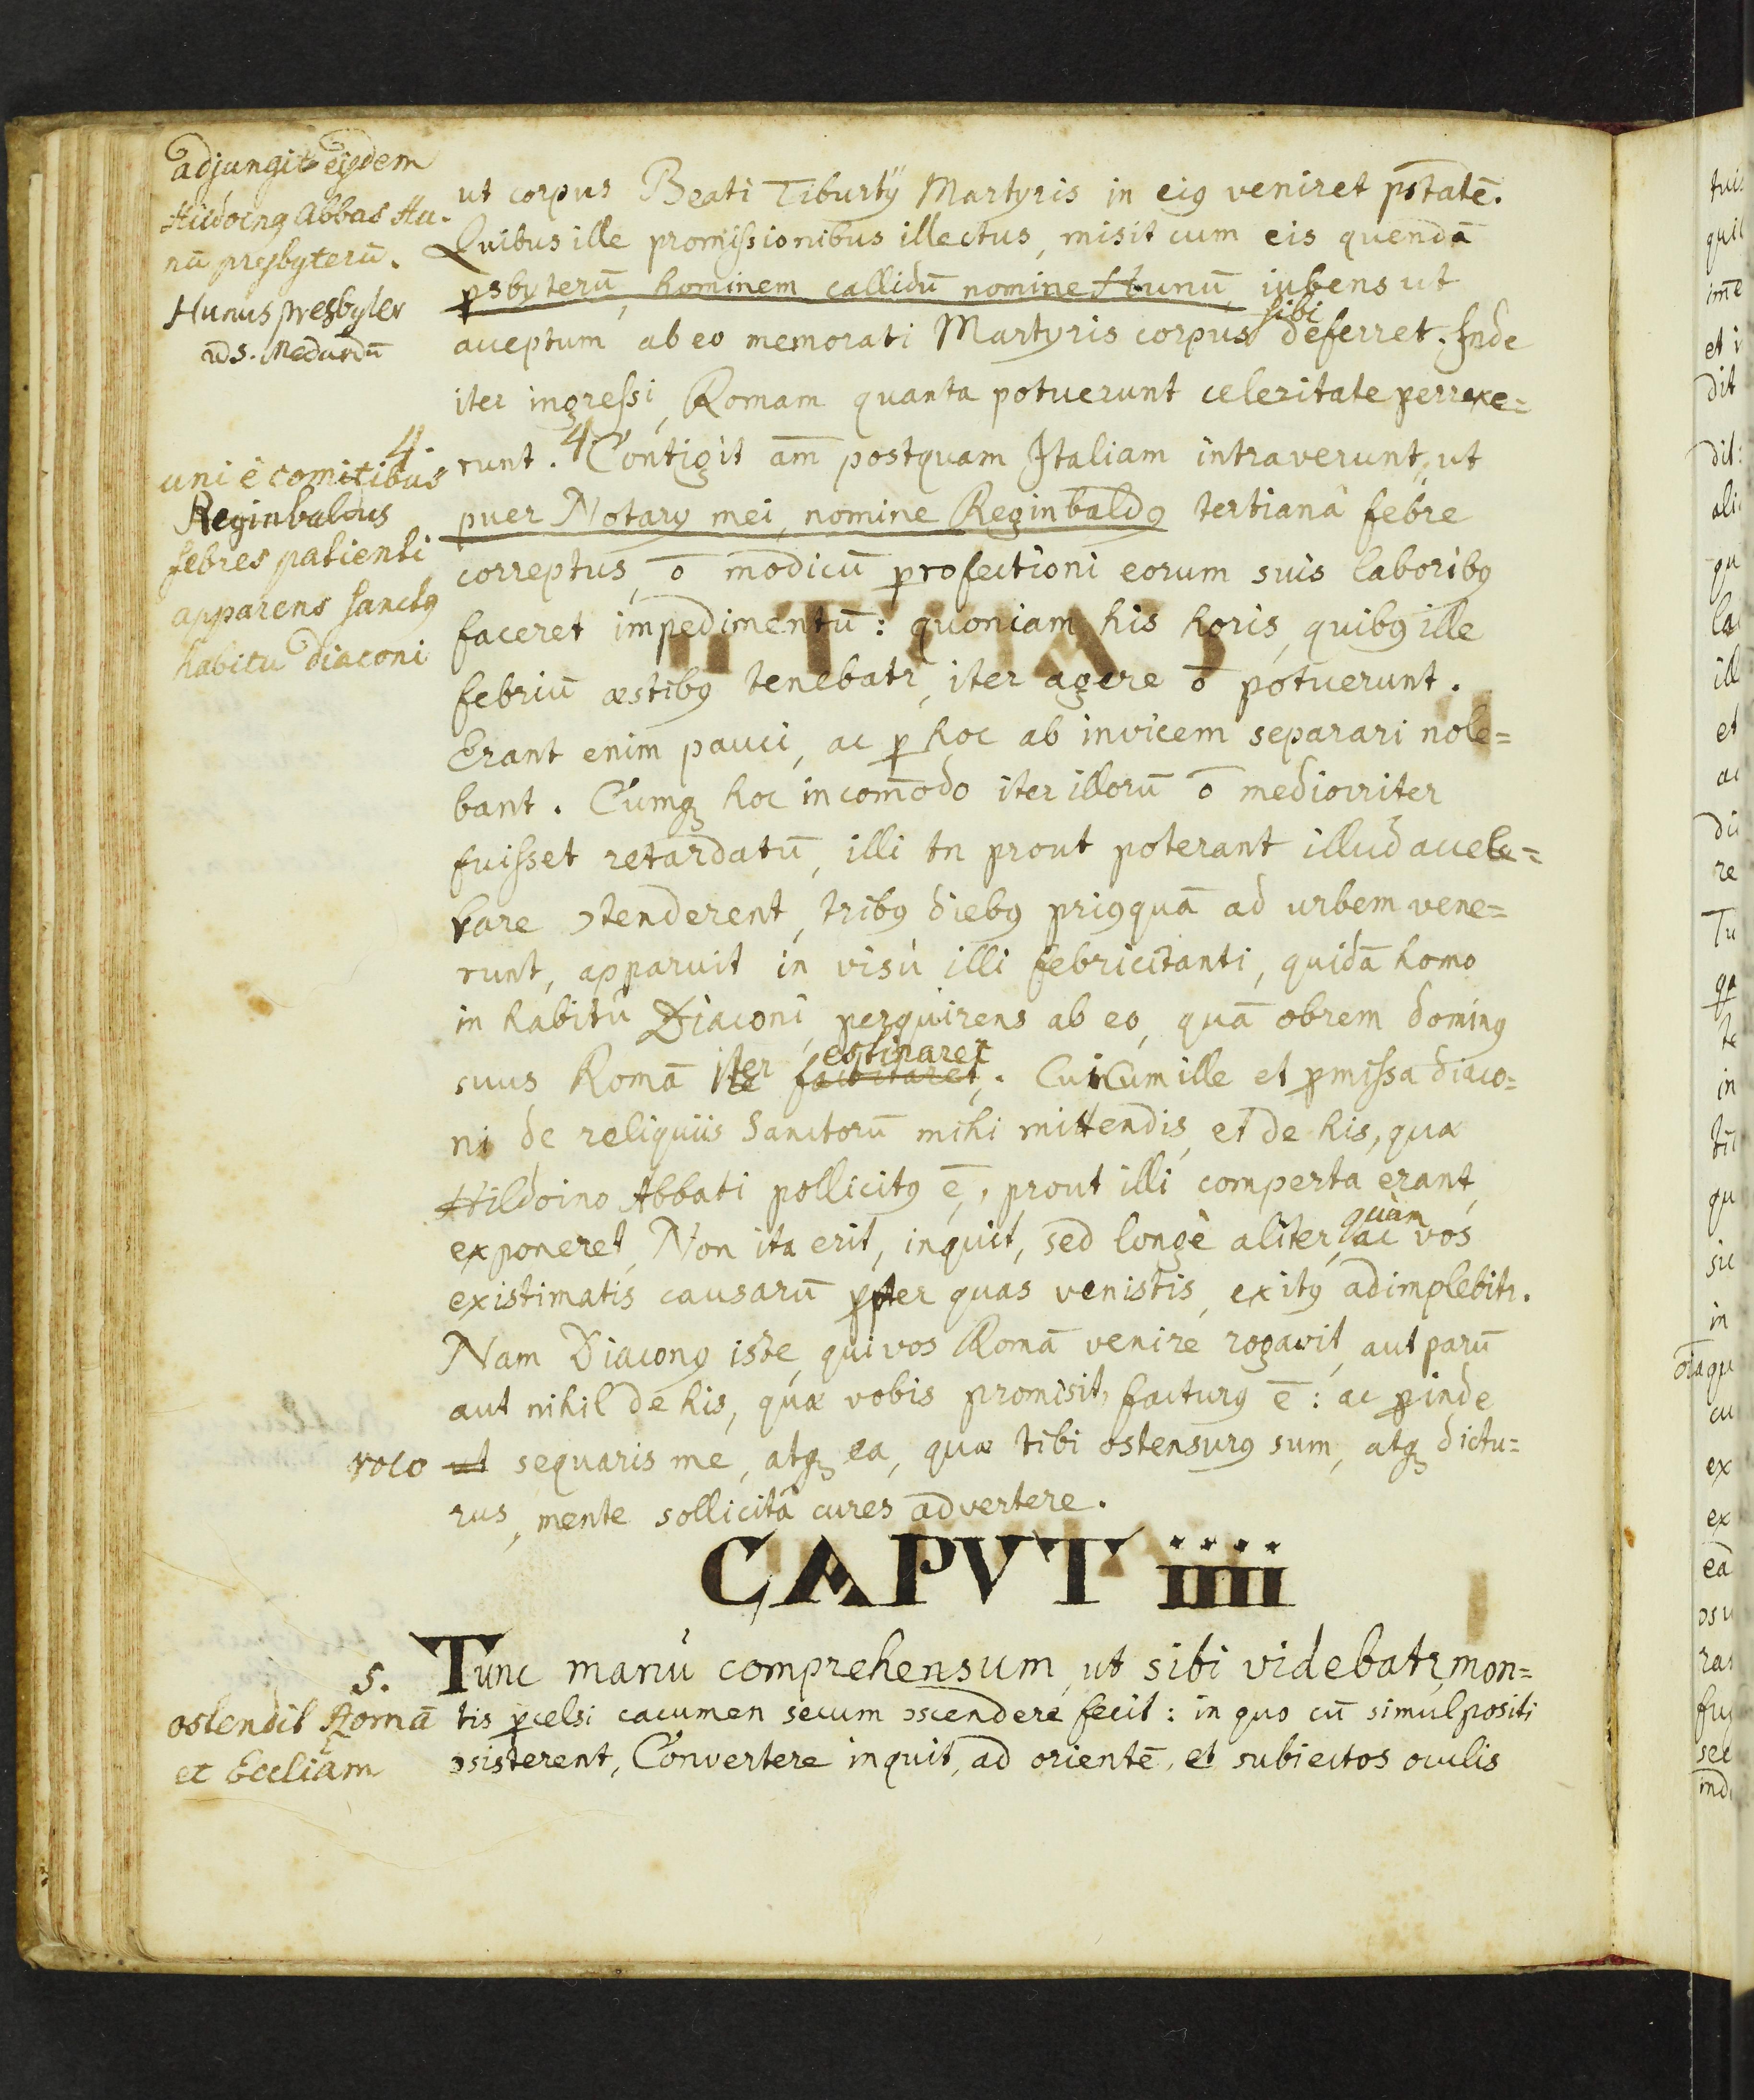 adjungit eiꝯdem
Hildoinꝯ Abbas Hu-
nū presbyterū.
Hunus presbyter
ad S. Medardū
ut corpus Beati Tiburtij Martyris in eiꝯ veniret pōtatē.
Quibus ille promissionibus illectus, misit cum eis quendā
psbyterū, hominem callidū nomine Hunū, iubens ut
acceptum ab eo memorati Martyris corpus sibi deferret. Inde
iter ingressi, Romam quanta potuerunt celeritate perrexe=
4.
uni è comitibus
Reginbaldus
febres patienti
apparens sanctꝯ
habitu diaconi
runt. 4 Contigit am̄ postquam Italiam intraverunt, ut
puer Notarij mei, nomine Reginbaldꝯ tertianâ febre
correptus, ō modicū profectioni eorum suis laboribꝯ
faceret impedimentū: quoniam his horis, quibꝯ ille
febriū æstibꝯ tenebatr, iter agere ō potuerunt.
Erant enim pauci, ac ꝑ hoc ab invicem separari nole=
bant. Cumqꝫ hoc incom̄odo iter illorū ō mediocriter
fuisset retardatū, illi tn prout poterant illud accele=
rare ↄtenderent, tribꝯ diebꝯ priꝯquā ad urbem vene=
runt, apparuit in visu illi febricitanti, quidā homo
in habitu Diaconi, perquirens ab eo, quā obrem dominꝯ
suus Romā iter festinaret. Cui cum ille et ꝓmissa diaco=
ni de reliquiis Sanctorū mihi mittendis, et de his, quæ
Hildoino Abbati pollicitꝯ ē, prout illi comperta erant,
exponeret, Non ita erit, inquit, sed longè aliter, quàm ac vos
existimatis causarū ꝓpter quas venistis, exitꝯ adimplebitr.
Nam Diaconꝯ iste, qui vos Romā venire rogavit, aut parū
aut nihil de his, quæ vobis promisit, facturꝯ ē: ac ꝓinde
volo ut sequaris me, atqꝫ ea, quæ tibi ostensurꝯ sum, atqꝫ dictu=
rus, mente sollicitâ cures advertere.
CAPVT iiii
5.
ostendit Romā
et Eccliam
Tunc manu comprehensum, ut sibi videbatr, mon=
tis p̄celsi cacumen secum ↄscendere fecit: in quo cū simul positi
ↄsisterent, Convertere inquit, ad orientē, et subiectos oculis